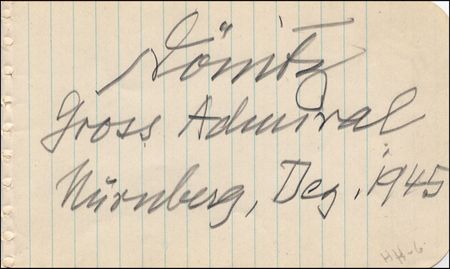 Dönitz
Gross Admiral
Nürnberg, Dez. 1945
HH-6